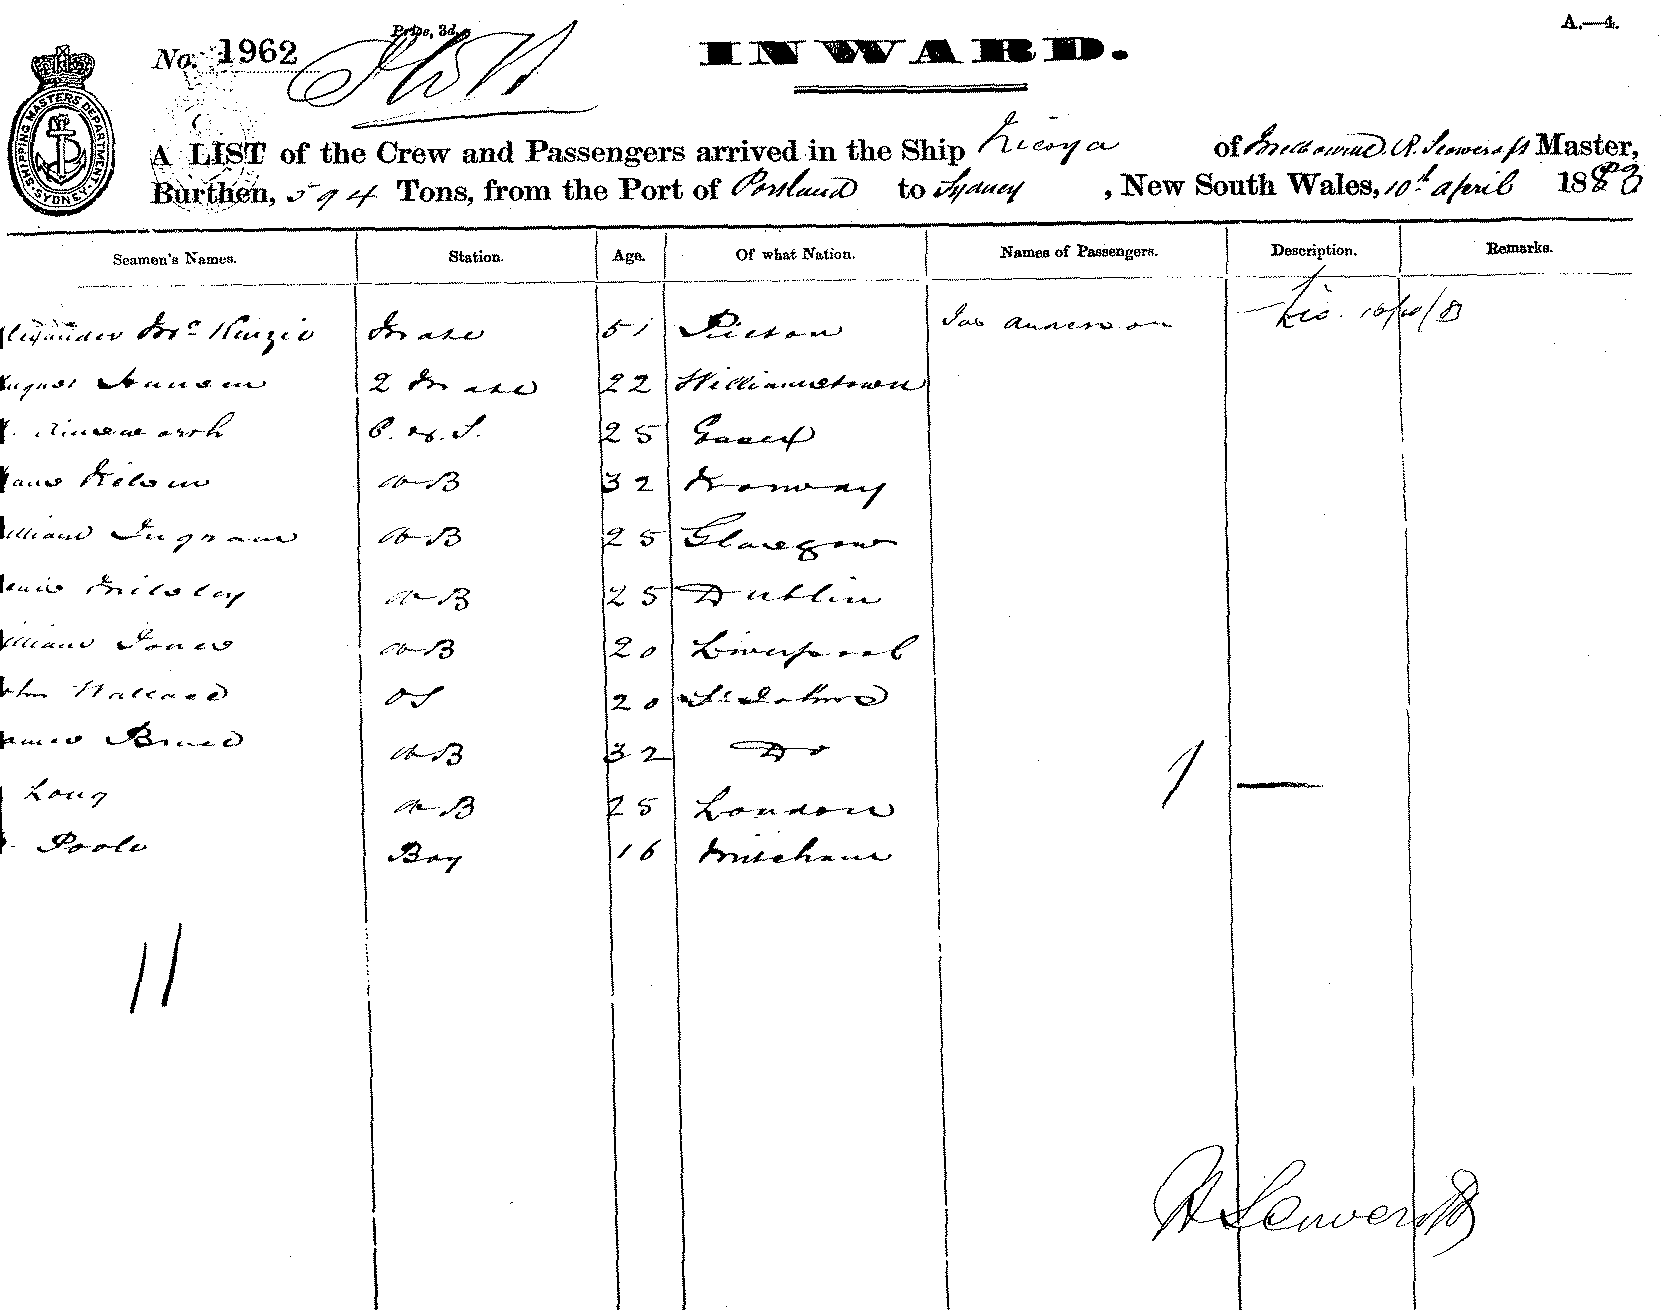 A.—4.
Price, 3d.
No. 1962
INWARD.
SHIPPING MASTERS DEPARTMENT SYDNEY
A LIST of the Crew and Passengers arrived in the Ship Nicoya of Melbourne R. Scowcroft Master,
Burthen, 594 Tons, from the Port of Portland to Sydney, New South Wales, 10th April 1883
Seamen's Names. Station. Age. Of what Nation. Names of Passengers. Description. Remarks.
lexander McKenzie Mate 51 Picton Jas Anderson
ugust Hansen 2 Mate 22 Williamstown
C. & S. 25 Essex
ans Nelsen AB 32 Norway
illiam Ingram AB 25 Glasgow
AB 25 Dublin
illiam Jones AB 20 Liverpool
ohn Wallace OS 20 St Johns
ames Bruce AB 32 Do
1
Long AB 25 London
Poole Boy 16 Mitcham
11
Scowcroft